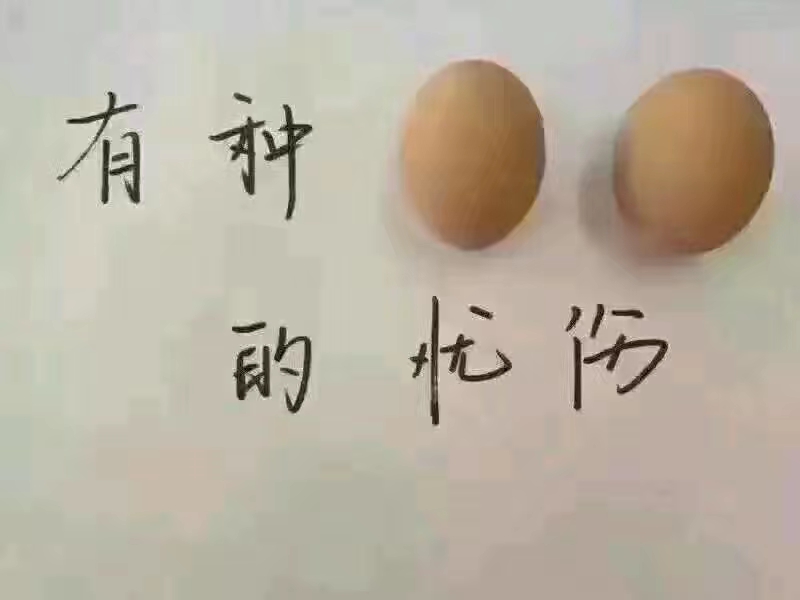 有种
的忧伤